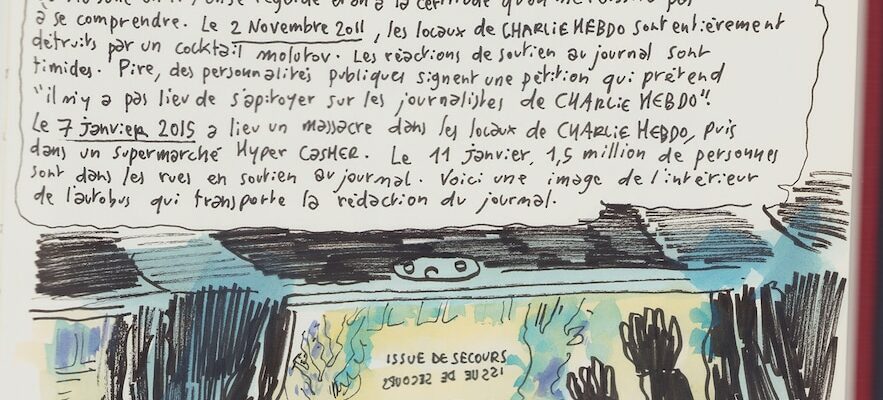 à se comprendre. Le 2 Novembre 2011, les locaux de CHARLIE HEBDO sont entièrement
détruits par un cocktail molotov. Les réactions de soutien au journal sont
timides. Pire, des personnalités publiques signent une pétition qui prétend
"il n'y a pas lieu de s'apitoyer sur les journalistes de CHARLIE HEBDO".
Le 7 janvier 2015 a lieu un massacre dans les locaux de CHARLIE HEBDO, puis
dans un supermarché Hyper CASHER. Le 11 janvier, 1,5 million de personnes
sont dans les rues en soutien au journal. Voici une image de l'intérieur
de l'autobus qui transporte la rédaction du journal.
ISSUE DE SECOURS
ISSUE DE SECOURS